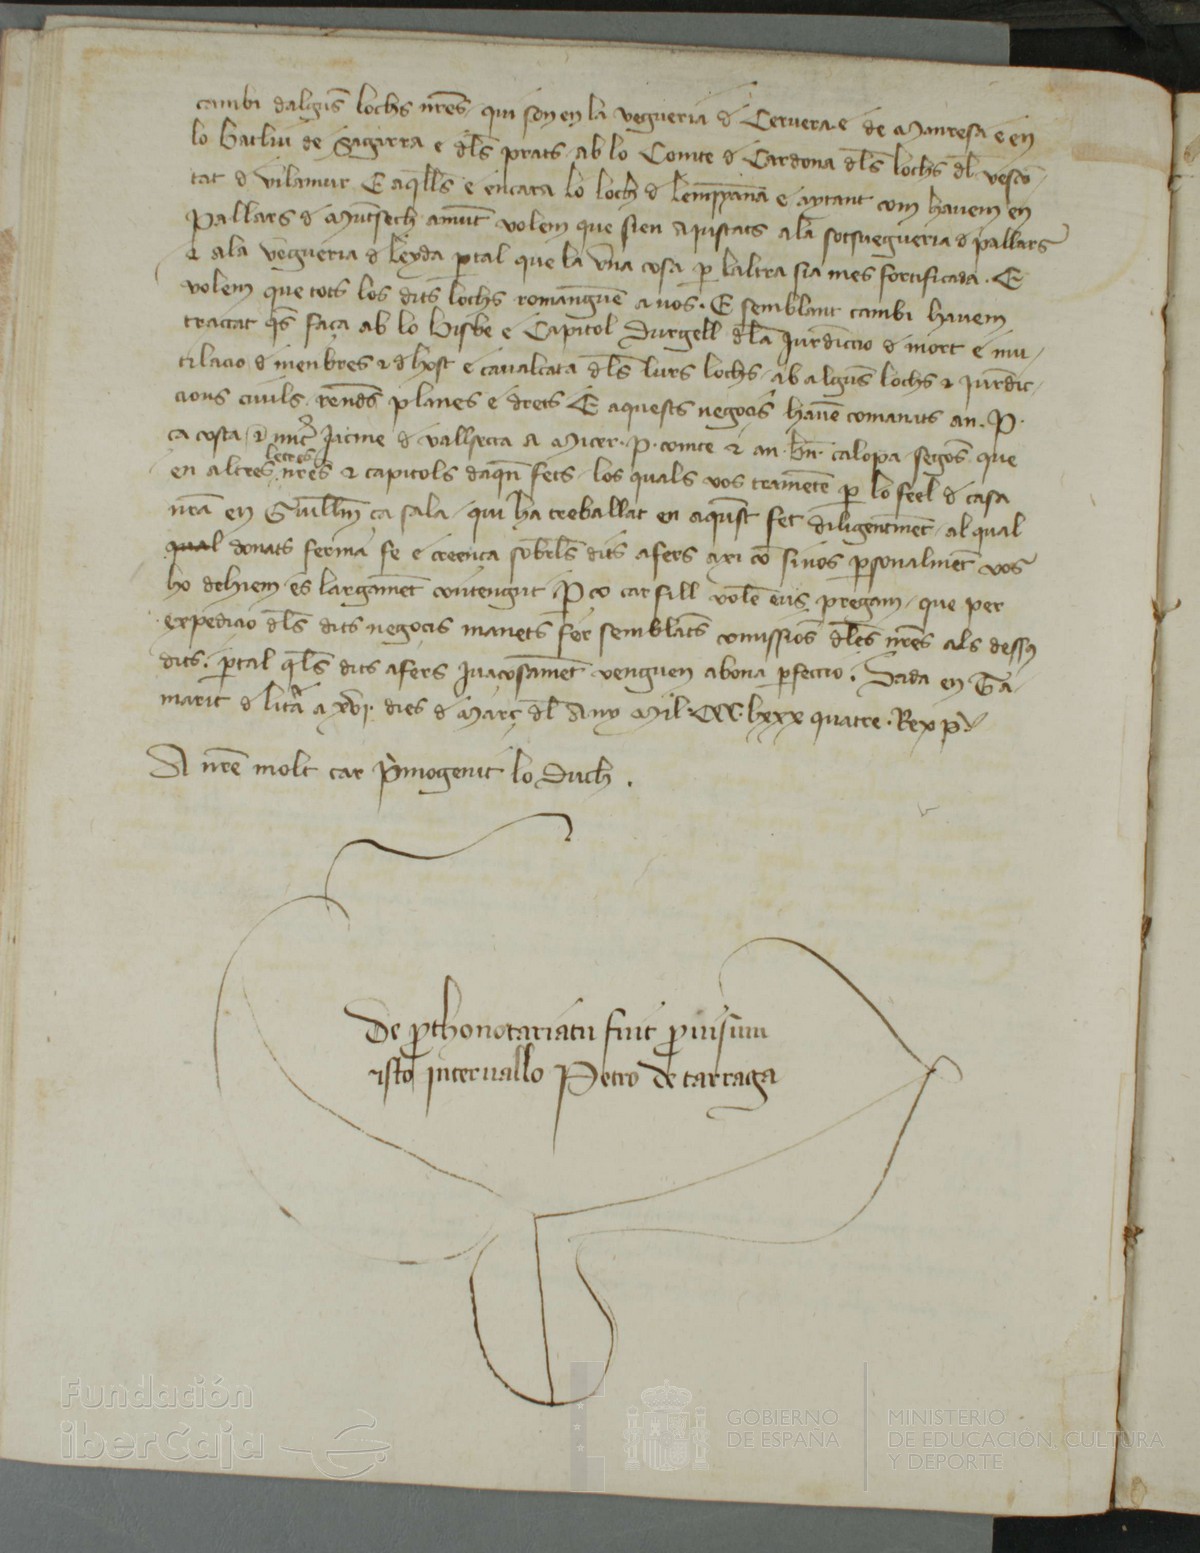 cambi dalguns lochs nr̄es qui son en la vegueria d Ceruera e de Manresa e en
lo Batliu de Sagarra e dl̄s prats ab lo Comte d Cardona dl̄s lochs dl̄ vescō
tat d vilamur E aq̄lls e encara lo loch d e aytant com hauem en
Pallars d Mūtsech amūt volem que sien aiustats ala sotsuegueria d pallars
⁊ ala vegueria d leyda ꝑtal que la vna cosa ꝑ laltra sia mes fortificada . E
volem que tots los dits lochs romanguē a nos . E semblant cambi hauem
tractat q̄s faça ab lo Bisbe e Capitol Durgell dl̄a Jurdiccio d mort e mu
tilacio d menbres ⁊ d host e caualcata dl̄s lurs lochs ab alguns lochs ⁊ jurdic
cions ciuils rendes planes e drets E aquests negocis hauē comanats an . P .
ça costa ⁊ micer Jacme d vallsecca a Micer . P . comte ⁊ an . bn̄ . calopa segōs que
en altres letres nr̄es ⁊ capitols daq̄n fets los quals vos trametē ꝑ lo feel d casa
nr̄a en Guillm̄ ça sala qui ha treballat en aquest fet diligentmēt al qual
qual donats ferma fe e creença sobrels dits afers axi cō sinos ꝑsonalmēt vos
ho dehiem es largamēt contengut Per ço car fill volē eus pregam que per
expedicio dl̄s dits negocis manets fer semblāts comissiōs dl̄es nr̄es als dessus
dits . ꝑtal q̄ls dits afers juaçosamēt venguen abona ꝑfeccio . Dada en Ta
marit d litᵃ a xvj . dies d Març dl̄ Any Mil . CCC . lxxx quatre . Rex p .
A nr̄e molt car pͥmogenit lo Duch .
De ꝓthonotariatu fuit ꝓuisum
isto interuallo Petro de tarraga
Fundación
iberCaja
GOBIERNO
DE ESPAÑA
MINISTERIO
DE EDUCACIÓN, CULTURA
Y DEPORTE